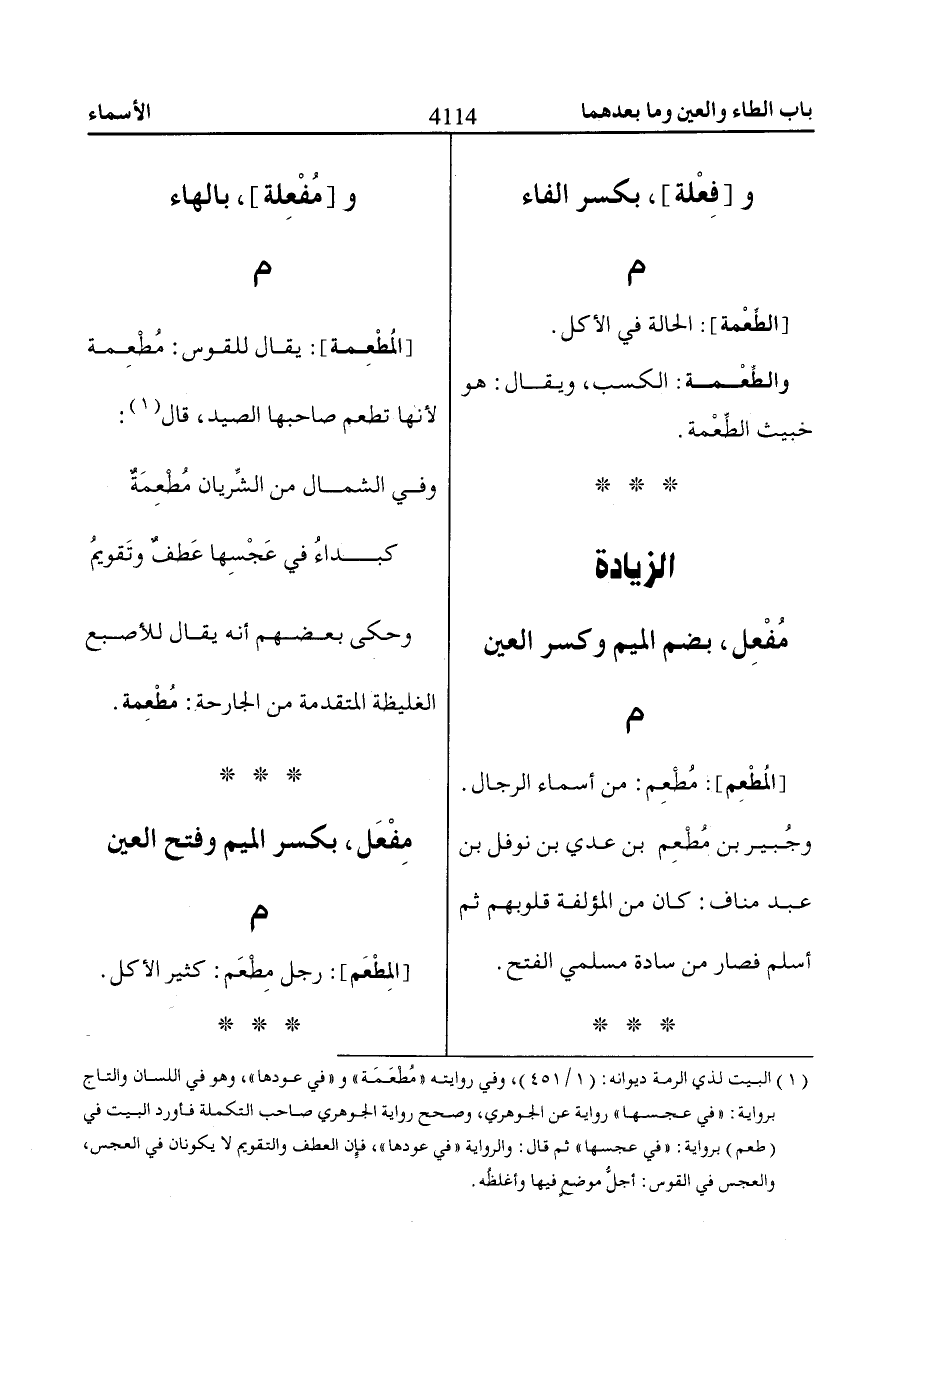 باب الطاء والعين وما بعدهما
4114
الأسماء
و [فِعْلة]، بكسر الفاء
م
[الطِّعْمة]: الحالة في الأكل.
والطِّعْمة: الكسب، ويقال: هو
خبيث الطِّعْمة.
* * *
الزيادة
مُفْعِل، بضم الميم وكسر العين
م
[المُطْعِم]: مُطْعِم: من أسماء الرجال.
وجُبير بن مُطْعِم بن عدي بن نوفل بن
عبد مناف: كان من المؤلفة قلوبهم ثم
أسلم فصار من سادة مسلمي الفتح.
* * *
و [مُفْعِلة]، بالهاء
م
[المُطْعِمة]: يقال للقوس: مُطْعِمة
لأنها تطعم صاحبها الصيد، قال(١):
وفي الشمال من الشِّريان مُطْعِمَةٌ
كبداءُ في عَجْسها عَطفٌ وتَقويمُ
وحكى بعضهم أنه يقال للأصبع
الغليظة المتقدمة من الجارحة: مُطْعِمة.
* * *
مِفْعَل، بكسر الميم وفتح العين
م
[المِطْعَم]: رجل مِطْعَم: كثير الأكل.
* * *
(١) البيت لذي الرمة ديوانه: (١/ ٤٥١)، وفي روايته «مُطْعَمَة» و «في عودها»، وهو في اللسان والتاج
برواية: «في عجسها» رواية عن الجوهري، وصحح رواية الجوهري صاحب التكملة فأورد البيت في
(طعم) برواية: «في عجسها» ثم قال: والرواية «في عودها»، فإن العطف والتقويم لا يكونان في العجس،
والعجس في القوس: أجلُّ موضعٍ فيها وأغلظُه.